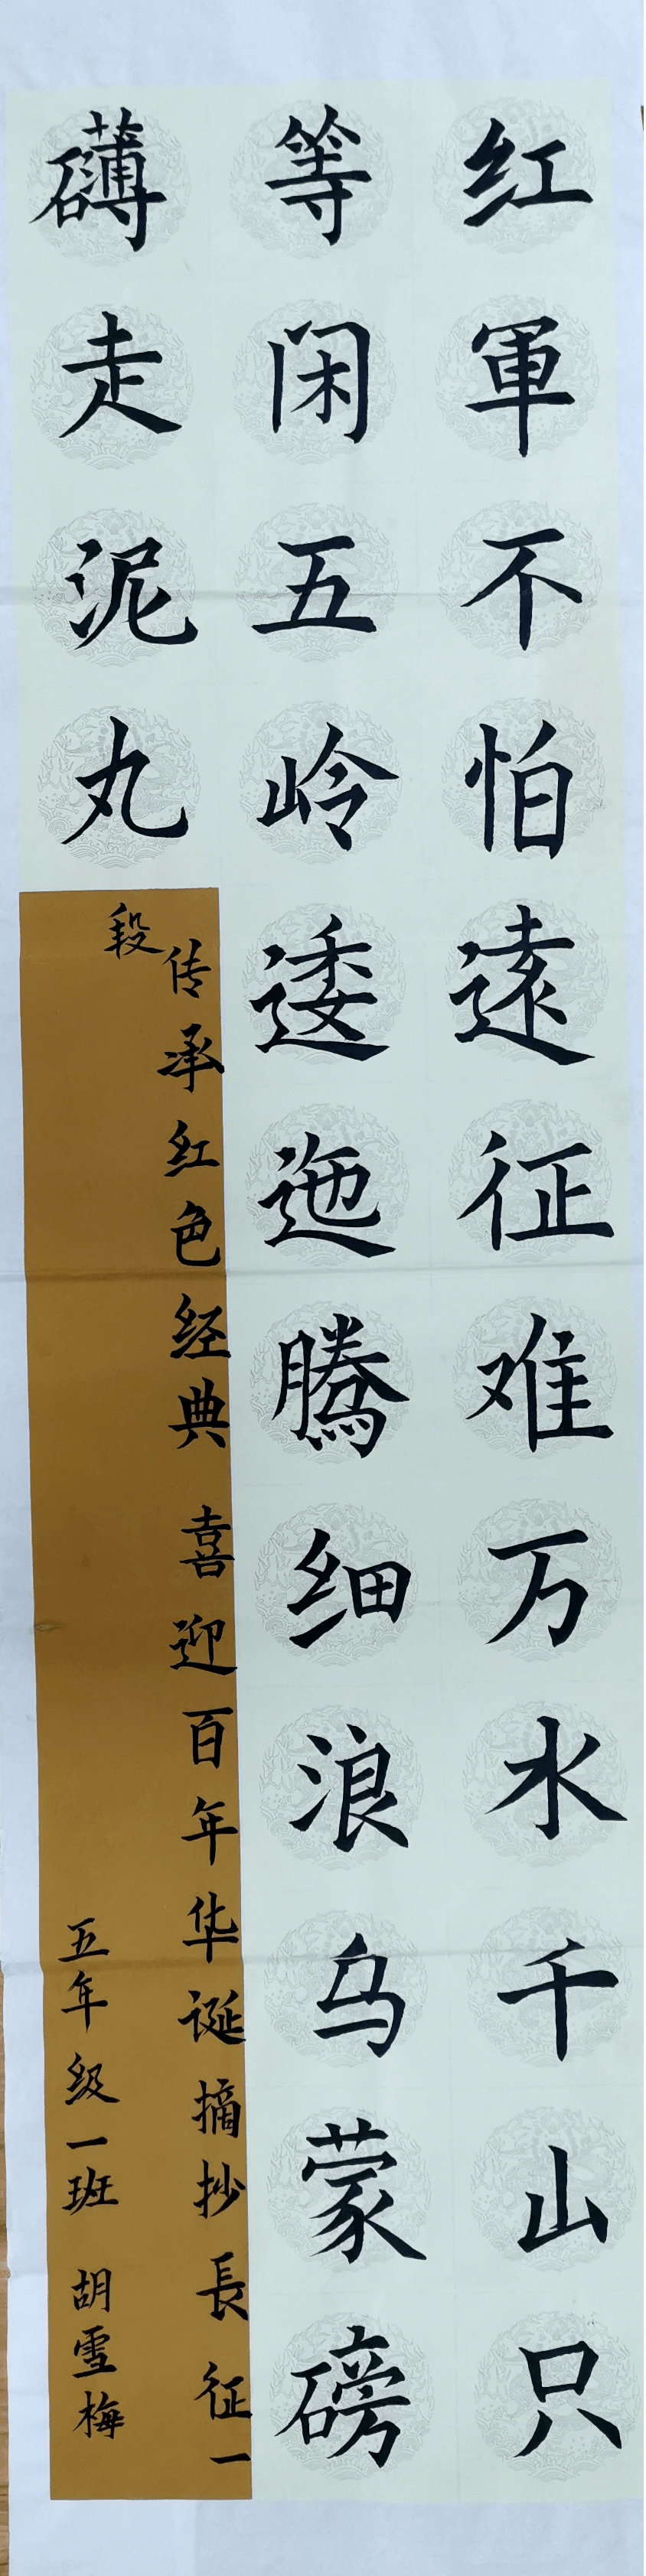 红軍不怕遠征难万水千山只
等闲五岭逶迤腾细浪乌蒙磅
礴走泥丸
传承红色经典 喜迎百年华诞摘抄長征一
段
五年级一班 胡雪梅